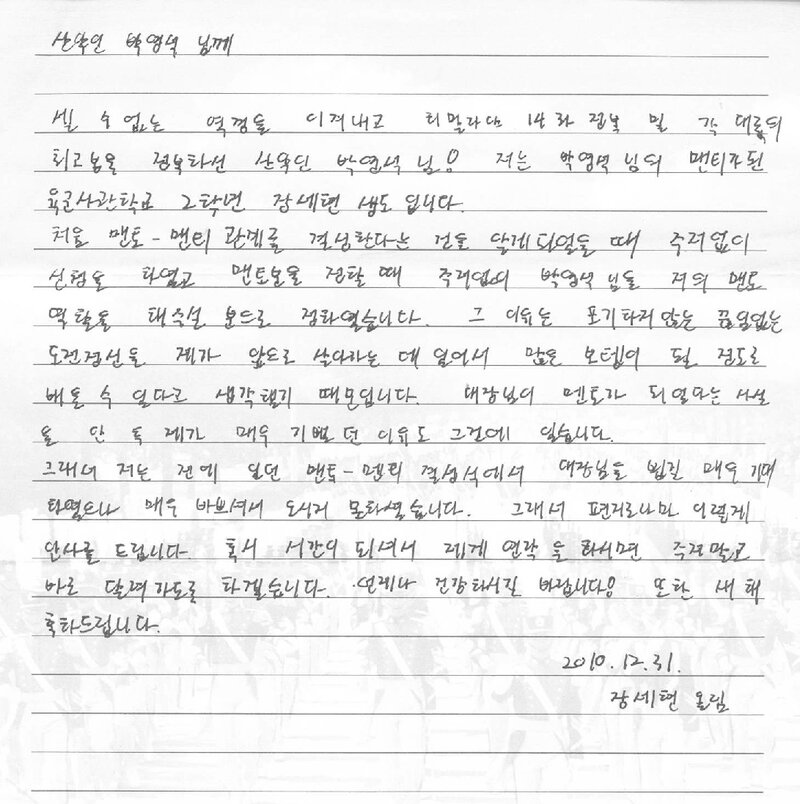 산악인 박영석 님께
셀 수 없는 역경을 이겨내고 히말라야 14좌 정복 및 각 대륙의
최고봉을 정복하신 산악인 박영석 님! 저는 박영석 님의 멘티가 된
육군사관학교 2학년 장세현 생도입니다.
처음 멘토-멘티 관계를 결성한다는 것을 알게되었을 때 주저없이
신청을 하였고 멘토분을 정할 때 주저없이 박영석 님을 저의 멘토
역할을 해주실 분으로 정하였습니다. 그 이유는 포기하지 않는 끊임없는
도전정신을 제가 앞으로 살아가는 데 있어서 많은 보탬이 될 정도로
배울 수 있다고 생각했기 때문입니다. 대장님이 멘토가 되었다는 사실
을 안 후 제가 매우 기뻤던 이유도 그것에 있습니다.
그래서 저는 전에 있던 멘토-멘티 결성식에서 대장님을 뵙길 매우 기대
하였으나 매우 바쁘셔서 오시지 못하셨습니다. 그래서 편지로나마 이렇게
인사를 드립니다. 혹시 시간이 되셔서 제게 연락을 하시면 주저말고
바로 달려가도록 하겠습니다. 언제나 건강하시길 바랍니다! 또한 새해
축하드립니다.
2010.12.31.
장세현 올림